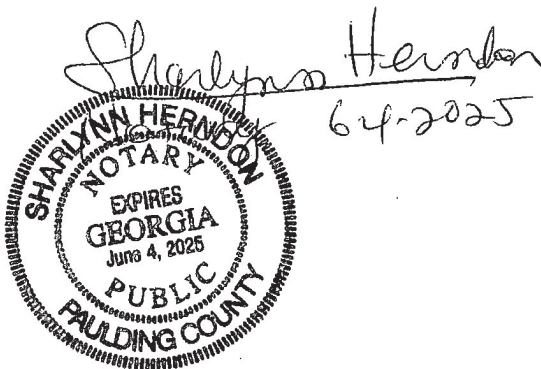 Sharlynn Herndon
6-4-2025
SHARLYNN HERNDON
NOTARY
EXPIRES
GEORGIA
June 4, 2025
PUBLIC
PAULDING COUNTY